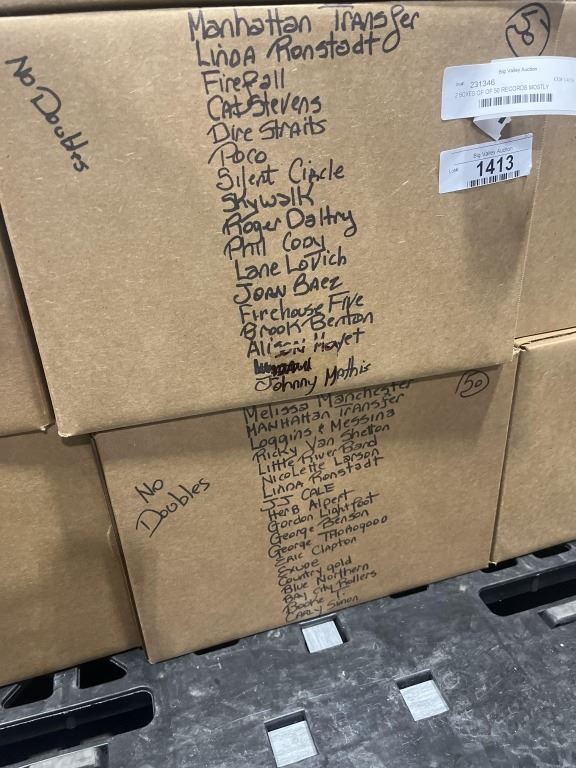 Manhattan Transfer
Linda Ronstadt
Firefall
Cat Stevens
Dire Straits
Poco
Silent Circle
Skywalk
Roger Daltry
Phil Cody
Lane Lovich
Joan Baez
Firehouse Five
Brook Benton
Alison Moyet
Johnny Mathis
No Doubles
50
Big Valley Auction
231346
2 BOXES OF OF 50 RECORDS MOSTLY
Big Valley Auction
Lot#
1413
Melissa Manchester
Manhattan Transfer
Loggins & Messina
Ricky Van Shelton
Little River Band
Nicolette Larson
Linda Ronstadt
JJ CALE
Herb Alpert
Gordon Lightfoot
George Benson
George Thorogood
Eric Clapton
Exude
Country gold
Blue Northern
Bay City Rollers
Booke T.
Carly Simon
No
Doubles
50